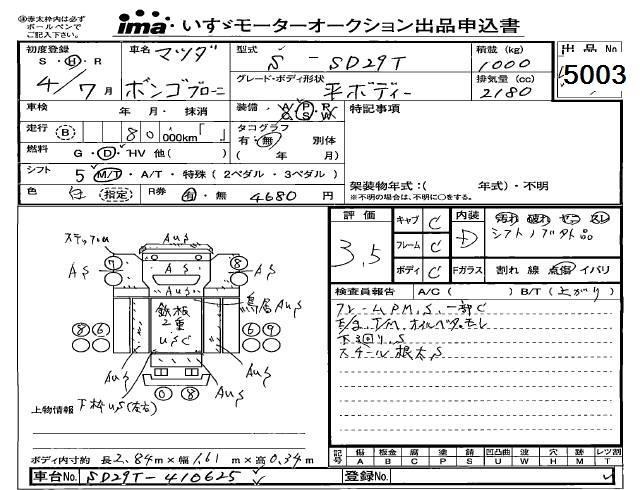 ※赤太枠内は必ず
ボールペンで
ご記入下さい。
ima・いすゞモーターオークション出品申込書
初度登録 S・H・R 4/7月
車名 マツダ ボンゴブローニ
型式 S － SD29T
積載 (kg) 1000
出品No 5003
グレード・ボディ形状 平ボディー
排気量 (cc) 2180
車検 年 月・抹消
装備 A/C P/S R/W
特記事項
走行 B 80,000km「 」
タコグラフ 有・無 別体 ( 年 月)
燃料 G・D・HV 他( )
シフト 5 M/T・A/T・特殊(2ペダル・3ペダル)
架装物年式:( 年式)・不明
※不明の場合は、不明に○をする。
色 白 (指定) R券 有・無 4680 円
評価 3.5
キャブ C
フレーム C
ボディ C
内装 D
汚れ 破れ セコ スレ
シフトノブ外品
Fガラス 割れ 線 点傷 イバリ
検査員報告 A/C( ) B/T(上がり)
フレームPM.S.一部C
E/g.T/M.オイルベタ.モレ
下回り.S
スチール根太S
ステップU
AuS
7 AS A S 8 AS
AuS
鳥居AuS
鉄板
2重
uSC
8 6 6 9
AuS AuS
0 8
上物情報 下枠uS(左右)
ボディ内寸約 長2.84m×幅1.61m×高0.34m
記号 傷 A 板金 B 腐 C 塗 P 錆 S 凹凸曲 U 波 W 穴 H 跡 M レツ割 T
車台No. SD29T-410625
登録No.